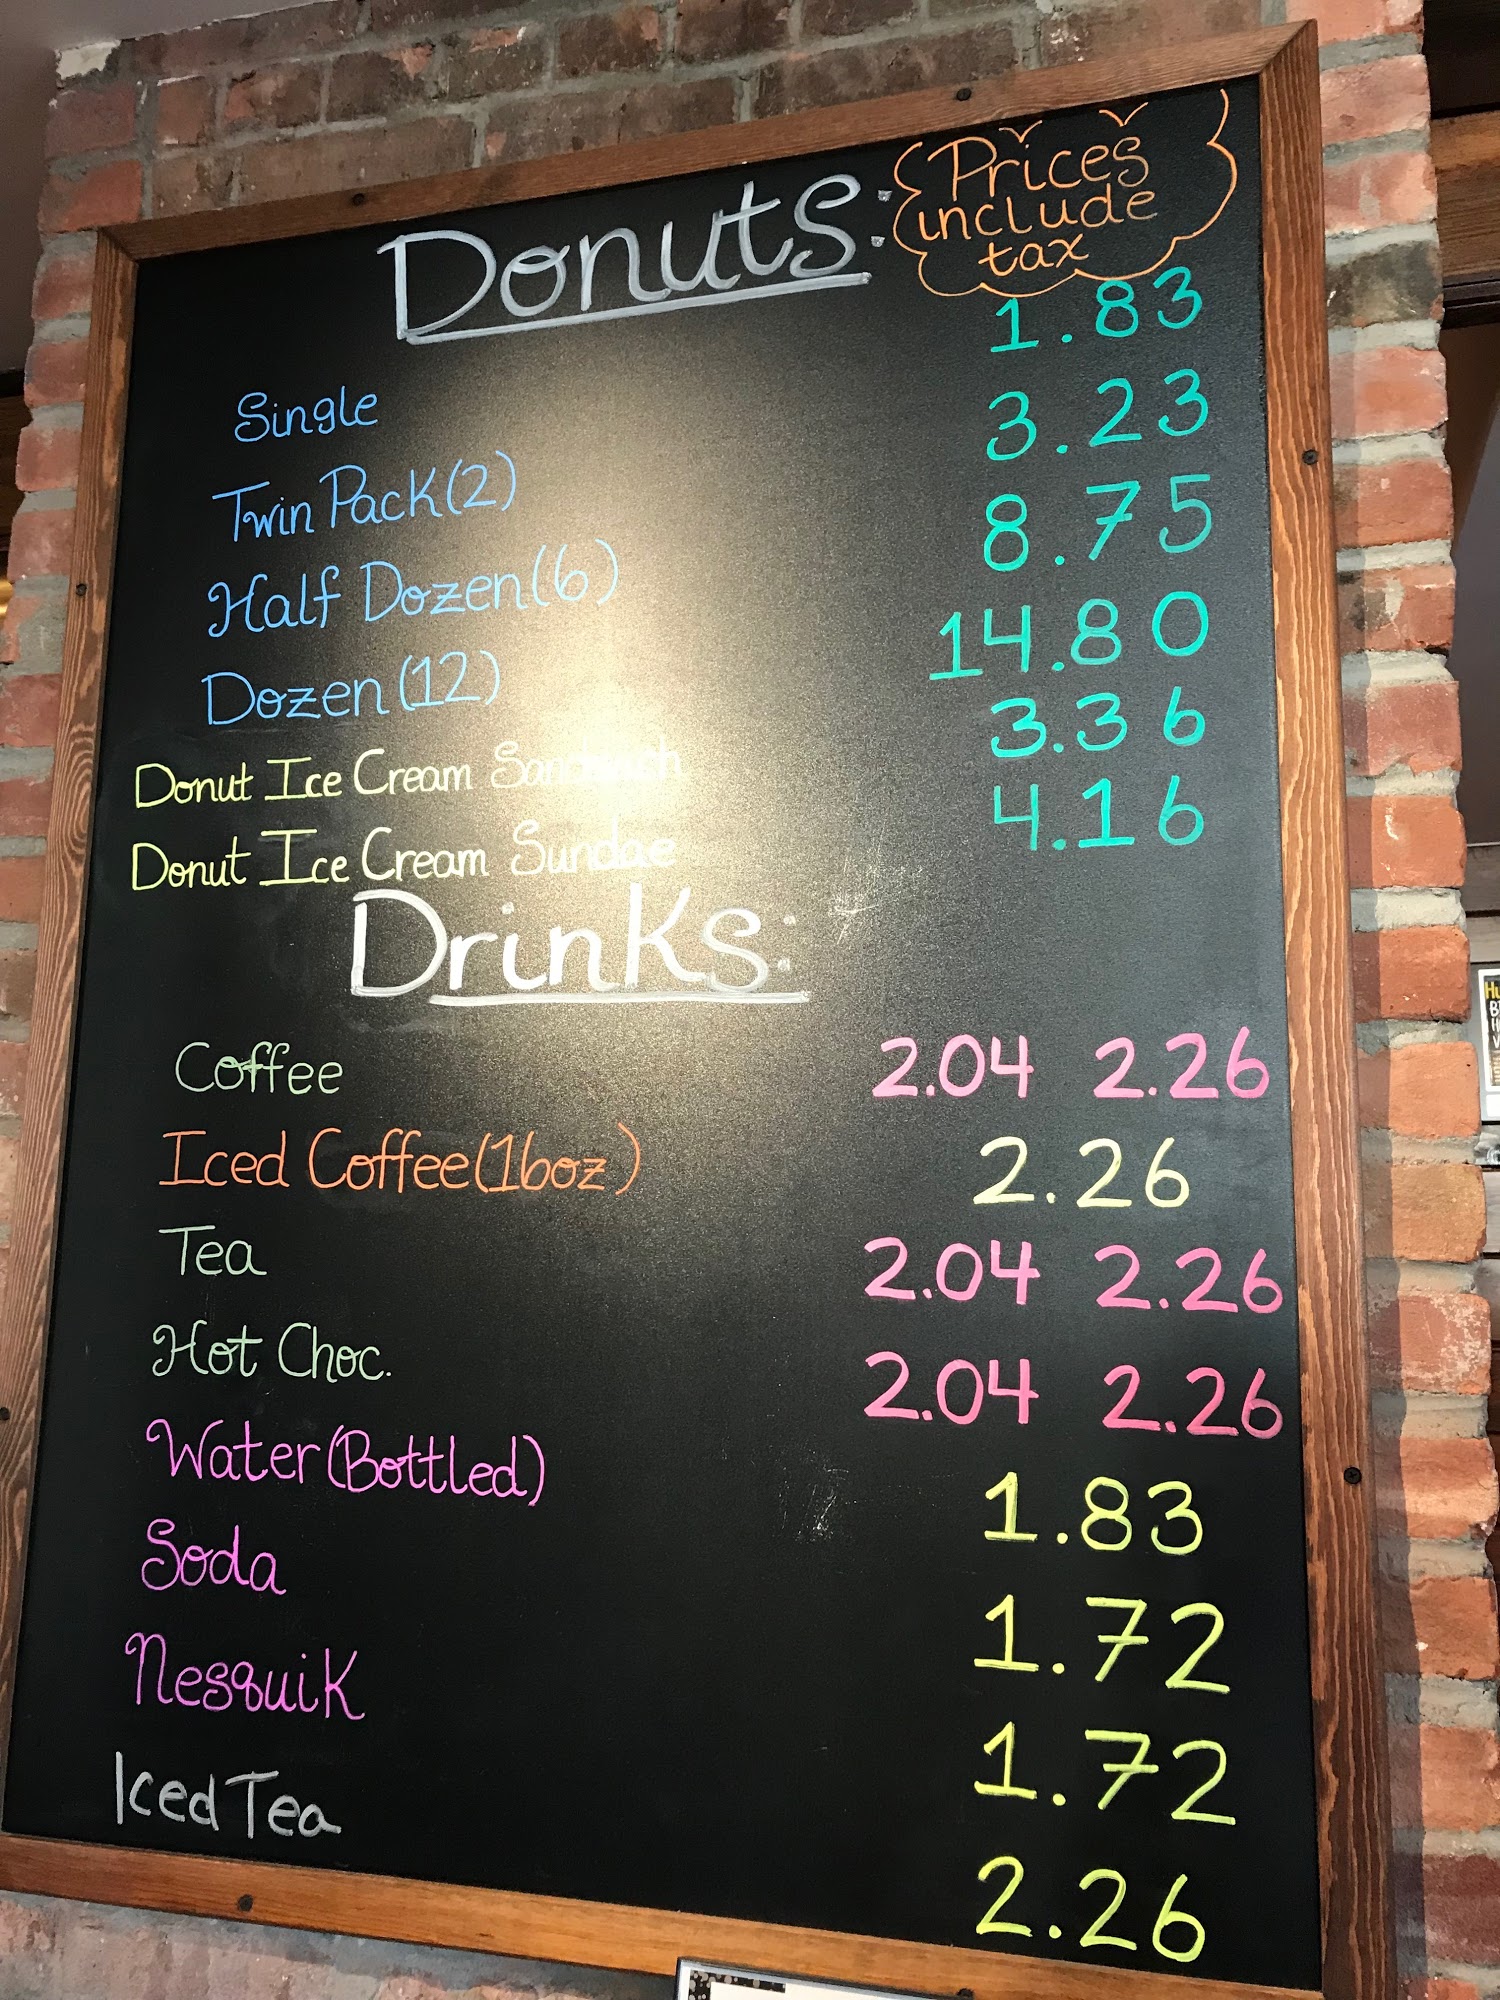 Donuts:
Prices
include
tax
Single 1.83
Twin Pack (2) 3.23
Half Dozen (6) 8.75
Dozen (12) 14.80
Donut Ice Cream Sandwich 3.36
Donut Ice Cream Sundae 4.16
Drinks:
Coffee 2.04 2.26
Iced Coffee (16oz) 2.26
Tea 2.04 2.26
Hot Choc. 2.04 2.26
Water (Bottled) 1.83
Soda 1.72
Nesquik 1.72
Iced Tea 2.26